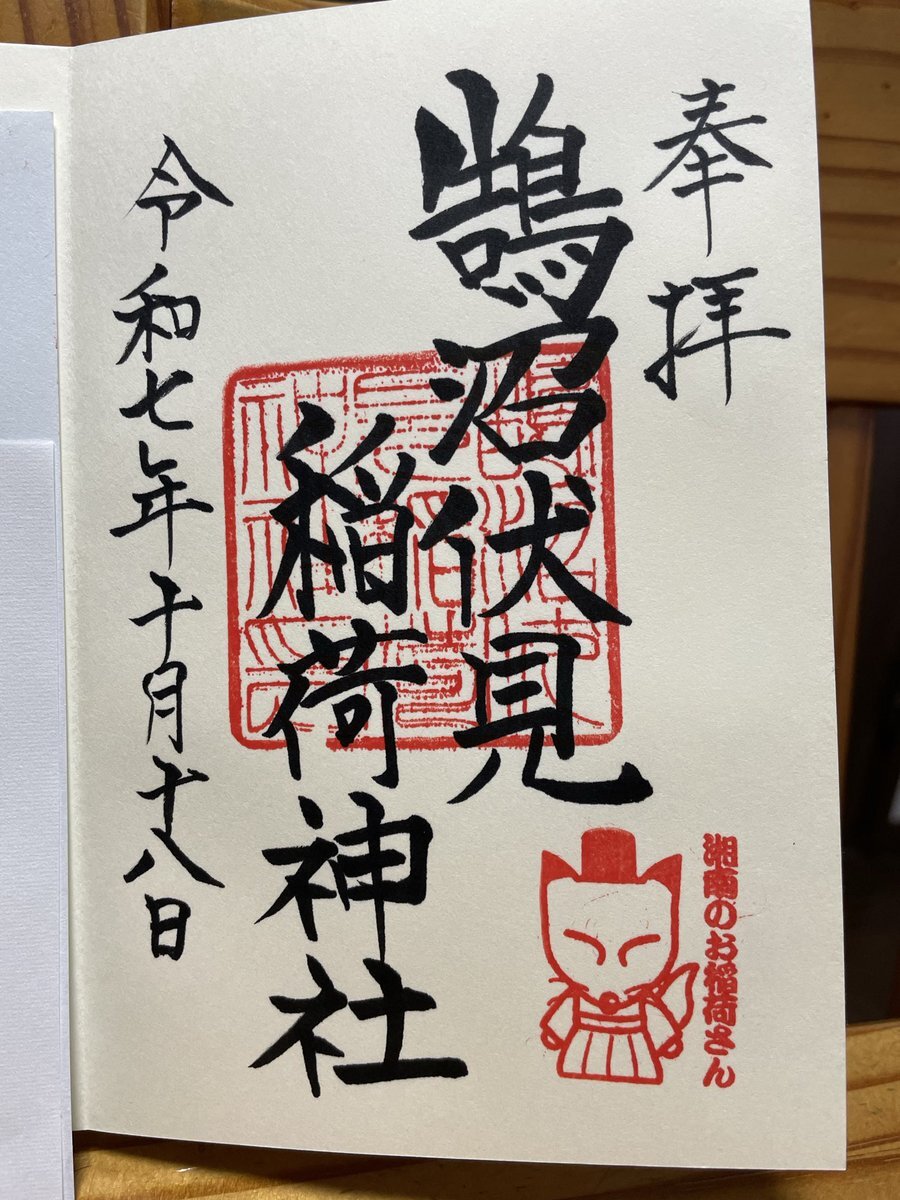 奉拝
鵠沼伏見
稲荷神社
令和七年十月十八日
湘南のお稲荷さん